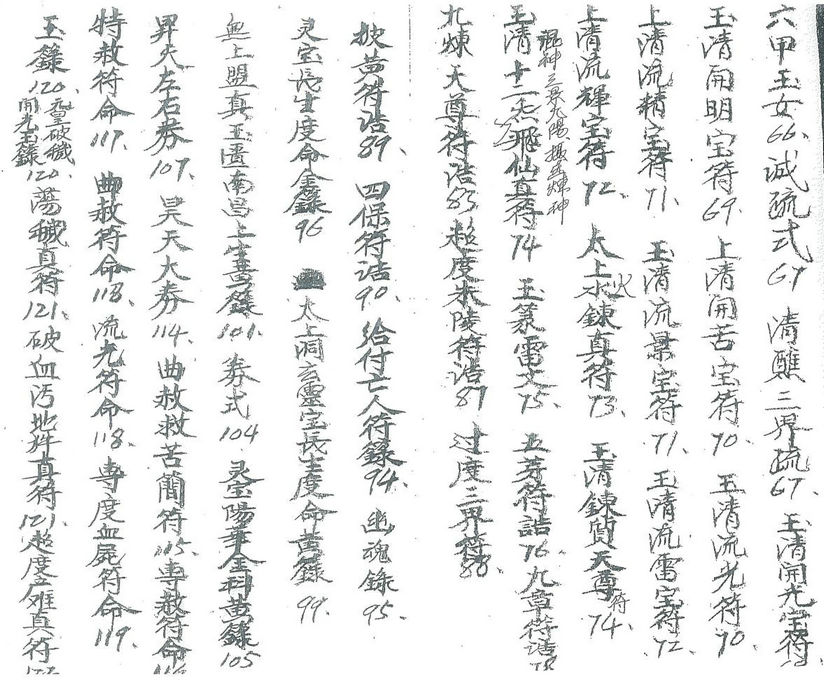 六甲玉女66、誠疏式67 清醮三界疏67、玉清開光宝符
玉清開明宝符69、上清開苦宝符70、玉清流光符70、
上清流精宝符71、玉清流景宝符71、玉清流雷宝符72、
上清流輝宝符72、太上水火鍊真符73、玉清鍊質天尊符74、
混神三景九陽 煉神
玉清十二炁飛仙真符74 玉篆雷文75、五芽符誥76、九章符誥78
九煉天尊符誥85、超度朱陵符誥87 过度三界符88、
披黃符誥89、四保符誥90、給付亡人符籙94、幽魂籙95、
灵宝長生度命金籙96 太上洞玄靈宝長生度命黃籙99、
無上盟真玉匱南昌上宮黃籙101、券式104 灵宝陽華金科黃籙105
昇天左右券107、昊天大券114、曲赦救苦蕳符115、専赦符命116
特赦符命117、曲赦符命118、流光符命118、専度血屍符命119、
玉籙120、破穢開光玉籙120、蕩穢真符121、破血污地拌真符121、超度产难真符